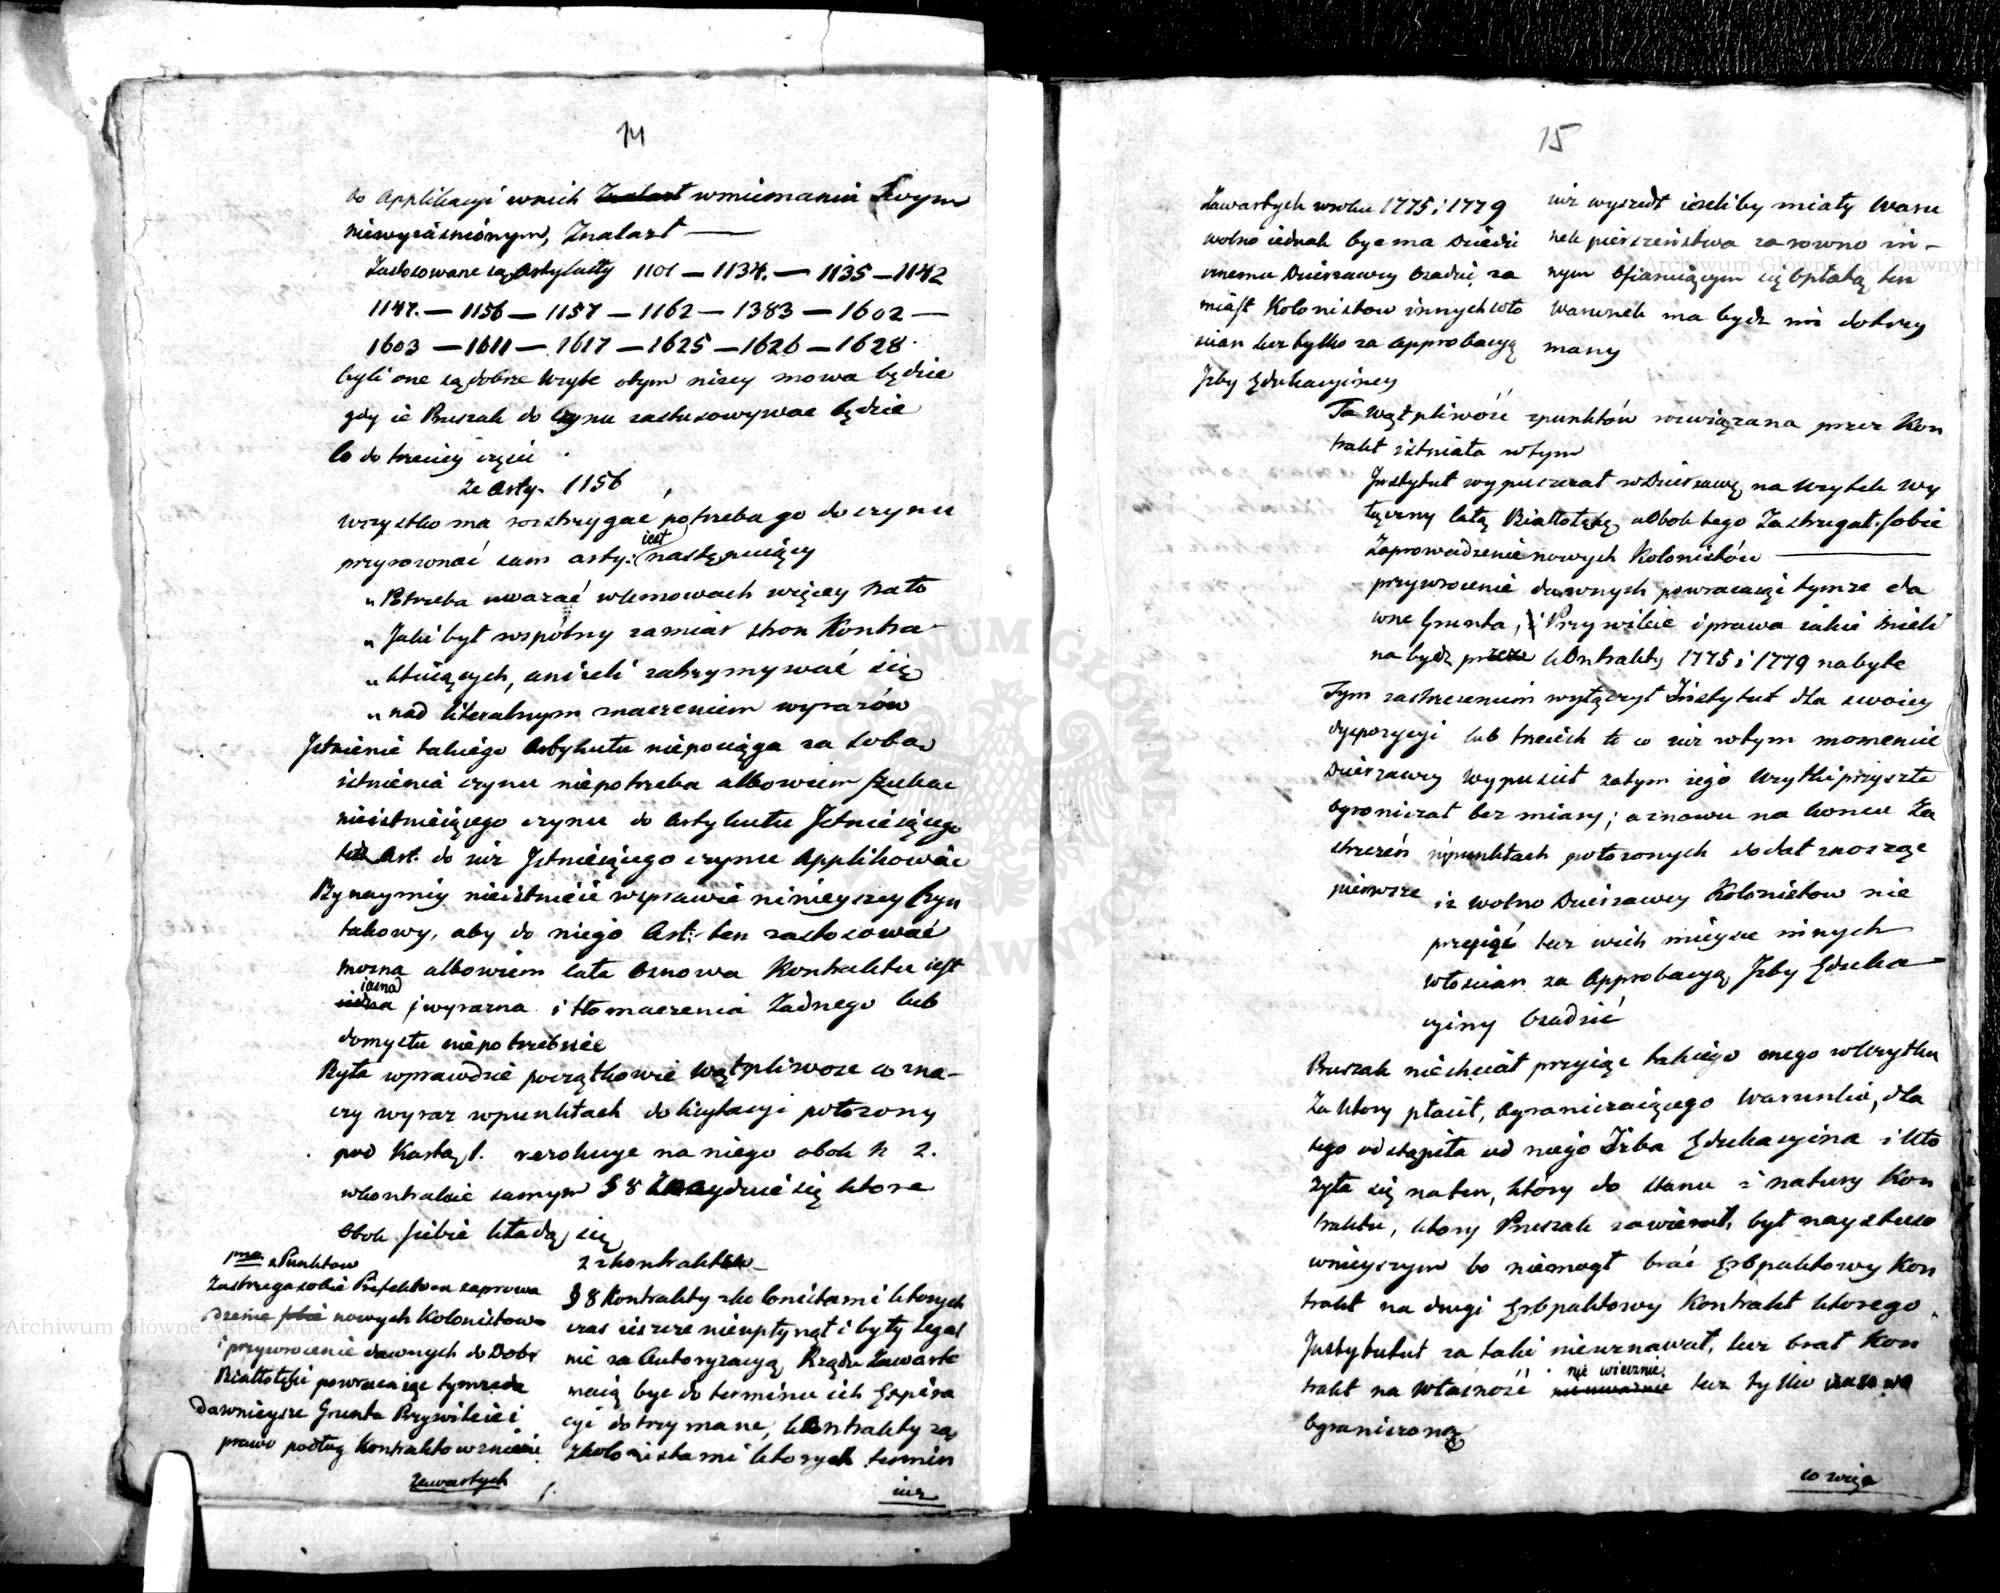 14
do Applikacyi w nich Znalazł w mniemaniu Swym
niewyiaśnionym, Znalazł —
Zastosowane są Artykuły 1101 — 1134. — 1135 — 1142
1147. — 1156 — 1157 — 1162 — 1383 — 1602 —
1603 — 1611 — 1617 — 1625 — 1626 — 1628.
byli one są dobrze Użyte o tym niżey mowa będzie
gdy ie Pruszak do Czynu zastosowywac będzie
Co do trzeciey częsci
Ze Arty. 1156
wszystko ma rozstrzygac, potrzeba go do czynu
przyrownać sam arty: iest następuiący
„ Potrzeba uwazać w Umowach więcey na to
„ Jaki był wspólny zamiar stron Kontra
„ ktuiących, anizeli zatrzymywać się
„ nad literalnym znaczeniem wyrazów
Istnienie takiego Artykułu niepociąga za sobą
istnienia czynu niepotrzeba albowiem szukac
nieistnieiącego czynu do Artykułu Istnieiącego
lecz Art. do iuz Istnieiącego czynu Applikować
Bynaymniey nieistnieie w sprawie ninieyszey Czyn
takowy, aby do niego Art: ten zastosować
mozna albowiem cała Osnowa Kontraktu iest
iasna i wyrazna i tłomaczenia Zadnego lub
domysłu niepotrzebuie
Była wprawdzie początkowie wątpliwosc co zna-
czy wyraz w punktach do licytacyi połozony
pod Kartą 1. rezolwuie na niego obok N 2.
w kontrakcie samym § 8 Znayduie się ktore
obok siebie kładą się
z Punktow
Zastrzega sobie Prefektora zaprowa
dzenie sobie nowych Kolonistow
i przywrocenie dawnych do Dobr
Białłołęki powracaiąc tymze da
dawnieysze Grunta Przywileie i
prawo podług Kontraktow z niemi
zawartych
2 z kontraktu
§ 8 Kontrakty z kolonistami ktorych
czas ieszcze nieupłynął i były legal
nie za Autoryzacyą Rządu Zawarte
maią byc do terminu ich Expira
cyi dotrzymane, kontrakty zaś
z kolonistami ktorych termin
iuz
15
Zawartych w roku 1775 i 1779
wolno iednak byc ma Dziedzi
cznemu Dzierzawcy Osadzic za
miast Kolonistow innych wło
scian lecz tylko za approbacyą
Izby Edukacyiney
iuz wyszedł iezeliby miały waru
nek pierszeństwa za rowno in-
nym Ofiaruiącym się Opłatą ten
warunek ma bydz im dotrzy
many
Ta wątpliwość z punktów rozwiązana przez Kon
trakt istniała w tym
Instytut wypuszczał w Dzierzawę na Uzytek wy
łączny całą Białłołękę a Obok tego Zastrzegał sobie
Zaprowadzenie nowych Kolonistów —
przywrocenie dawnych powracaiąc tymze da
wne Grunta, i Przywileie i prawa iakie mieli
nabydz przez kOntrakty 1775 i 1779 nabyte
Tym zastrzezeniem wyłączył Instytut dla swoiey
dyspozycyi lub trzecich to co iuz w tym momencie
Dzierzawcy Wypuscił zatym iego Uzytki przyszłe
Ograniczał bez miary; a znowu na koncu Za
strzeżeń w punktach połozonych dodał znosząc
pierwsze iz wolno Dzierzawcy Kolonistow nie
przyiąć lecz w ich mieysce innych
włoscian za Approbacyą Izby Eduka
cyiney Osadzić
Pruszak niechciał przyiąc takiego onego w Uzytku
Za ktory płacił, Ograniczaiącego warunku, dla
tego odstąpiła od niego Izba Edukacyina i Uło
zyła się na ten, ktory do stanu i natury Kon
traktu, ktory Pruszak zawierał, był nay stoso
wnieyszym bo niemogł brać Erbpaktowy Kon
trakt na drugi Erbpaktowy Kontrakt ktorego
Instytut za taki nieuznawał, lecz brał Kon
trakt na własność nie wiecznie lecz tylko czasowo
Ograniczoną
co więc